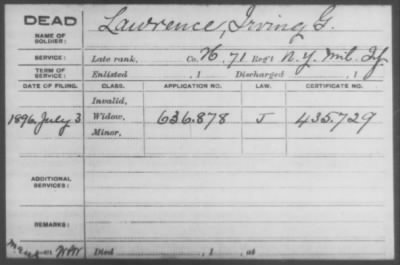 DEAD
NAME OF SOLDIER: Lawrence, Irving G.
SERVICE: Late rank, Co. H, 71 Reg't N.Y. Mil. If
TERM OF SERVICE: Enlisted , 1 Discharged , 1
DATE OF FILING. CLASS. APPLICATION NO. LAW. CERTIFICATE NO.
Invalid,
1896, July 3 Widow, 636.878 J 435.729
Minor,
ADDITIONAL SERVICES:
REMARKS:
Died , 1 , at